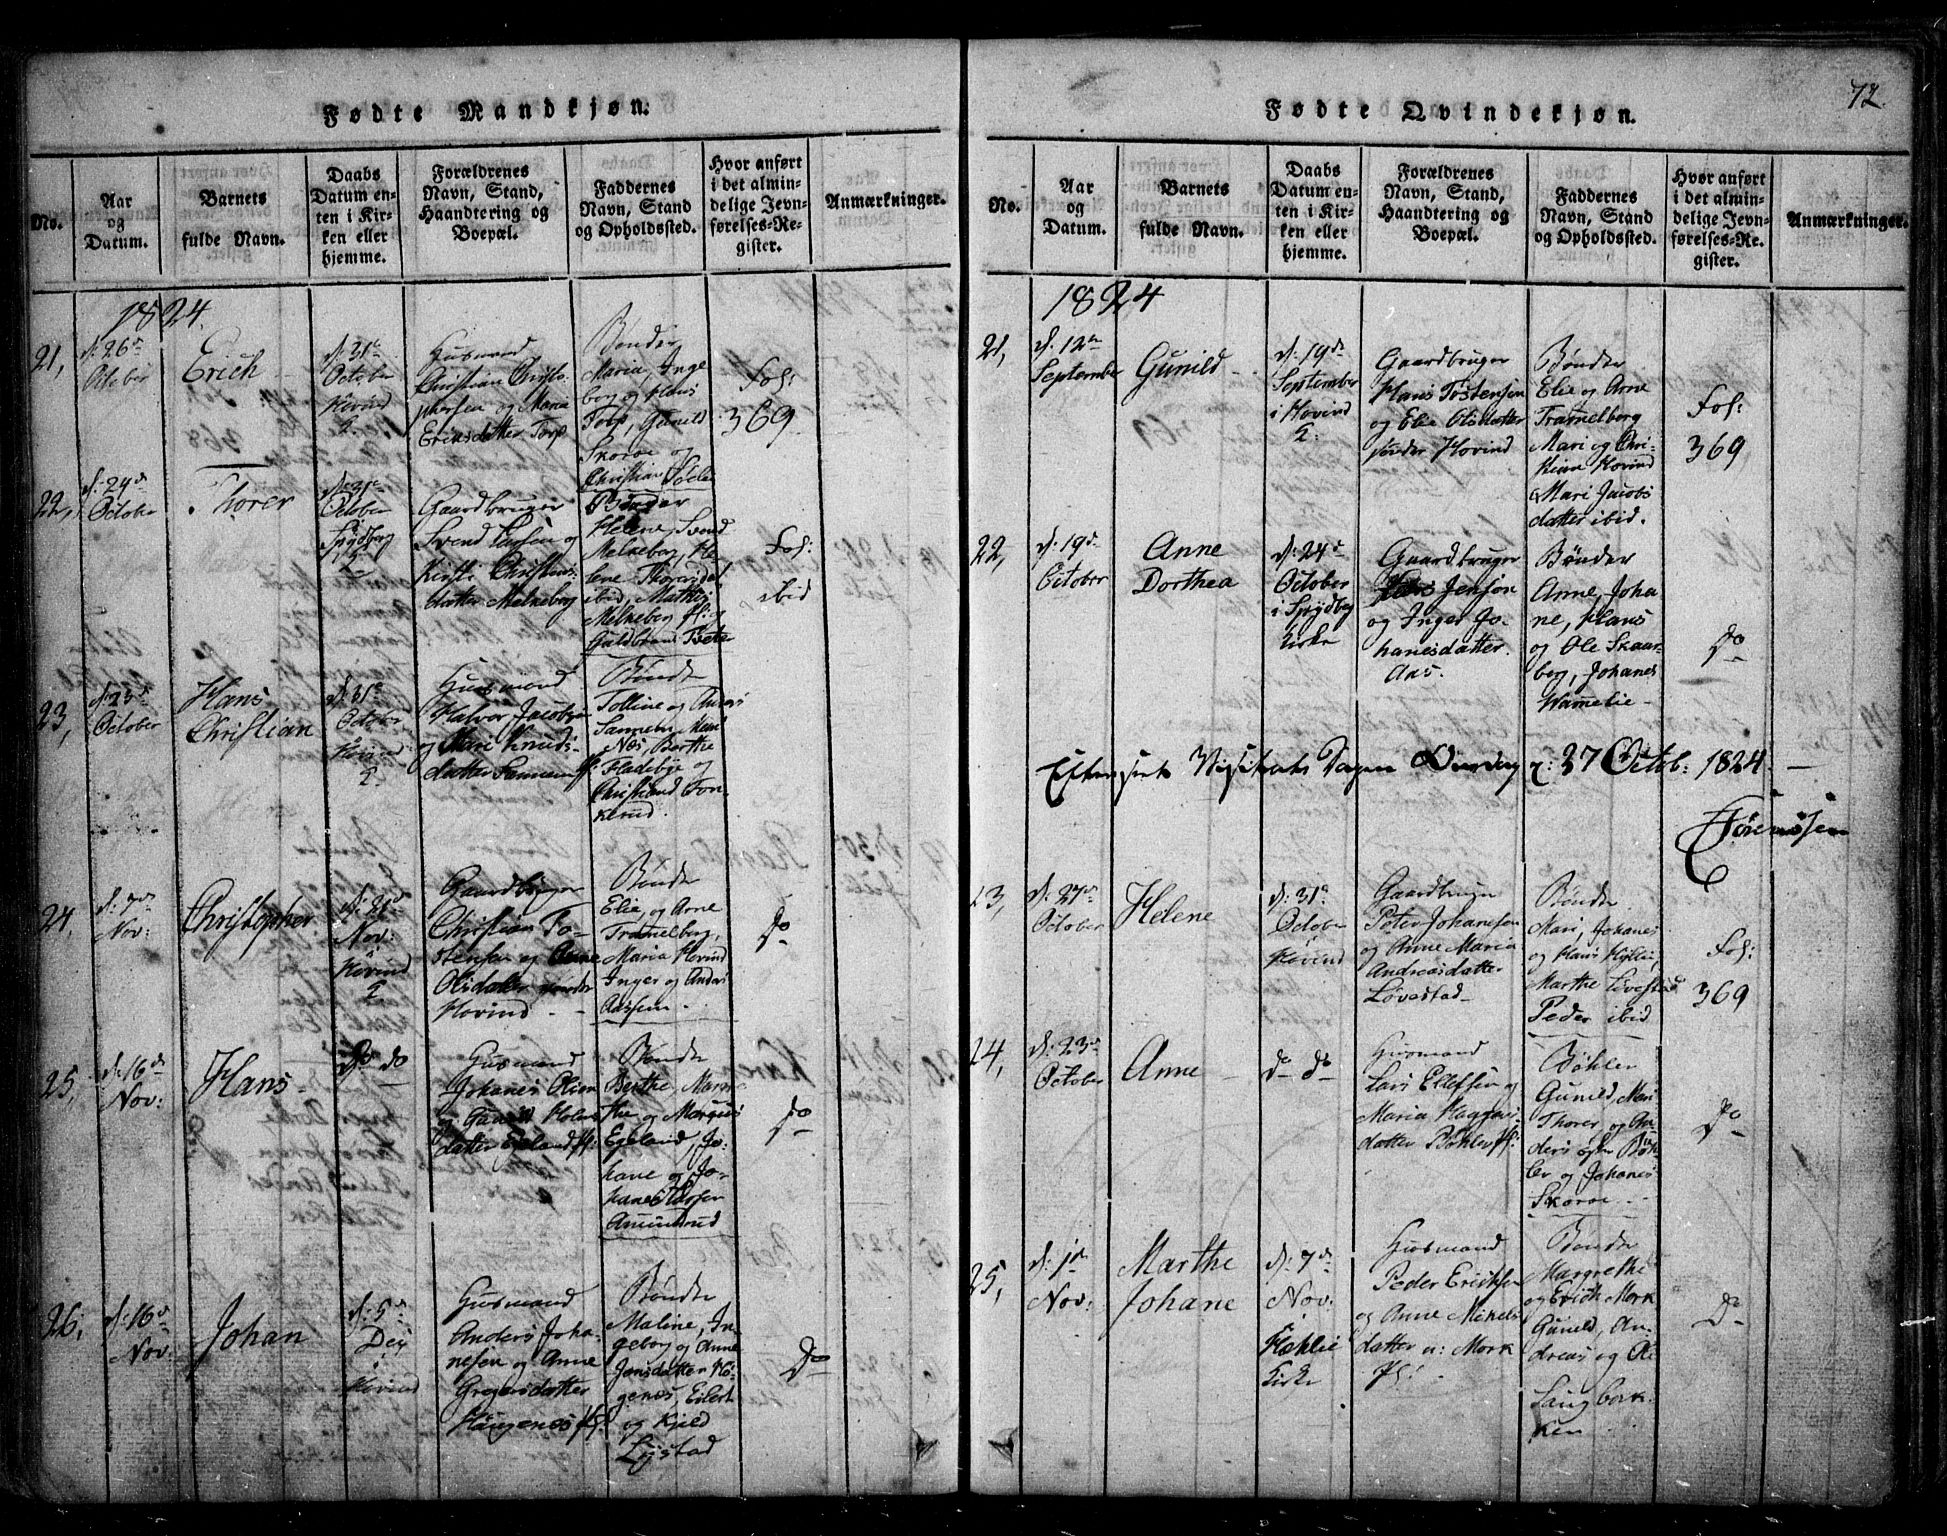 Fødte Mandkjøn.
No.
Aar
og
Datum.
Barnets
fulde Navn.
Daabs
Datum en-
ten i Kir-
ken eller
hjemme.
Forældrenes
Navn, Stand,
Haandtering og
Boepæl.
Faddernes
Navn, Stand
og Opholdssted.
Hvor anført
i det almin-
delige Jevn-
førelses-Re-
gister.
Anmærkninger.
1824.
21,
d: 26de
October
Erich
d: 31te
October
Hovind
Husmand
Christian Christo-
phersen og Maria
Ericsdatter Torp
Bønder
Maria, Inge
borg og Hans
Torp, Gunild
Skoroe og
Christian
Fol:
369
22,
d: 29de
October
Thorer
October
Spydberg
Gaardbruger
Svend Larsen og
Kirsti Christens-
datter Melneberg
Bønder
Helene, Svend
Melneberg, He-
lene Thorersdat
ibid, Mathis
Melneberg Pl: og
Guldbrand
Fol:
ibid
23,
October
Hans
Christian
d: 31te
October
Hovind
Husmand
Halvor Jacobsen
og Mari Knuds-
datter
Bønder
Tolline og
Næs, Berthe
Fladebye og
Christian
24,
d: 7de
Nov:
Christopher
d: 21de
Nov:
Hovind
Gaardbruger
Christian To-
stensen og Anne
Olsdatter søndre
Hovind
Bønder
Elie, og Arne
Tramelborg,
Maria Hovind
Inger og Anders
Aassem
do
25,
d: 16de
Nov:
Hans
do do
Husmand
Johanes Olsen
og Gunild
datter Egeland Pl:
Bønder
Berthe, Margre-
the, og Marqus
Egeland, Jo-
hane og Jo-
hanes Larsen
Amundrud
do
26,
d: 16de
Nov:
Johan
d: 5te
Hovind
Husmand
Anders Joha-
nesen og Anne
Gregersdatter
Haugenæs Pl:
Bønder
Maline, In-
geborg og Anne
Jensdatter Hø-
genæs, Eilert
og Kjeld
Lystad
do
Fødte Qvindekjøn.
72.
No.
Aar
og
Datum.
Barnets
fulde Navn.
Daabs
Datum en-
ten i Kir-
ken eller
hjemme.
Forældrenes
Navn, Stand,
Haandtering og
Boepæl.
Faddernes
Navn, Stand
og Opholdssted.
Hvor anført
i det almin-
delige Jevn-
førelses-Re-
gister.
Anmærkninger.
1824
21,
d. 12te
September
Gunild
d: 19de
September
i Hovind
Gaardbruger
Hans Tostensen
og Elie Olsdatter
sønder Hovind
Bønder
Elie og Arne
Tramelborg
Mari og Chri-
stian Hovind
Mari Jacobs
datter ibid.
Fol:
369
22,
d: 19de
October
Anne
Dorthea
d: 24de
October
i Spydberg
Kirke
Gaardbruger
Jenson
og Inger Jo-
hanesdatter
Aas.
Bønder
Anne, Joha-
ne, Hans
og Ole Skaar-
berg, Johanes
Wamelie
do
Efterseet Visitats Dagen Onsdag d: 27 Octob: 1824.
Sørenssen
23,
d: 27de
October
Helene
d: 31te
October
Hovind
Gaardbruger
Peter Johanesen
og Anne Maria
Andreasdatter
Løvestad
Bønder
Mari, Johanes
og Hans Hyllie,
Marthe Løvestad
Peder ibid
Fol:
369
24,
d: 23de
October
Anne
do do
Husmand
Lars Ellefsen og
Maria
datter Bøhler Pl:
Bøhler
Gunild, Mari
Thorer, og An-
ders
ler og Johanes
Skoroe
do
25,
d: 1de
Nov:
Marthe
Johane
d: 7de
Nov:
Kirke
Husmand
Peder Ericksen
og Anne Mikels
datter u: Mork
Pl:
Bønder
Margrethe
og Erich Mork
Gunild, An-
dreas og Ole
do